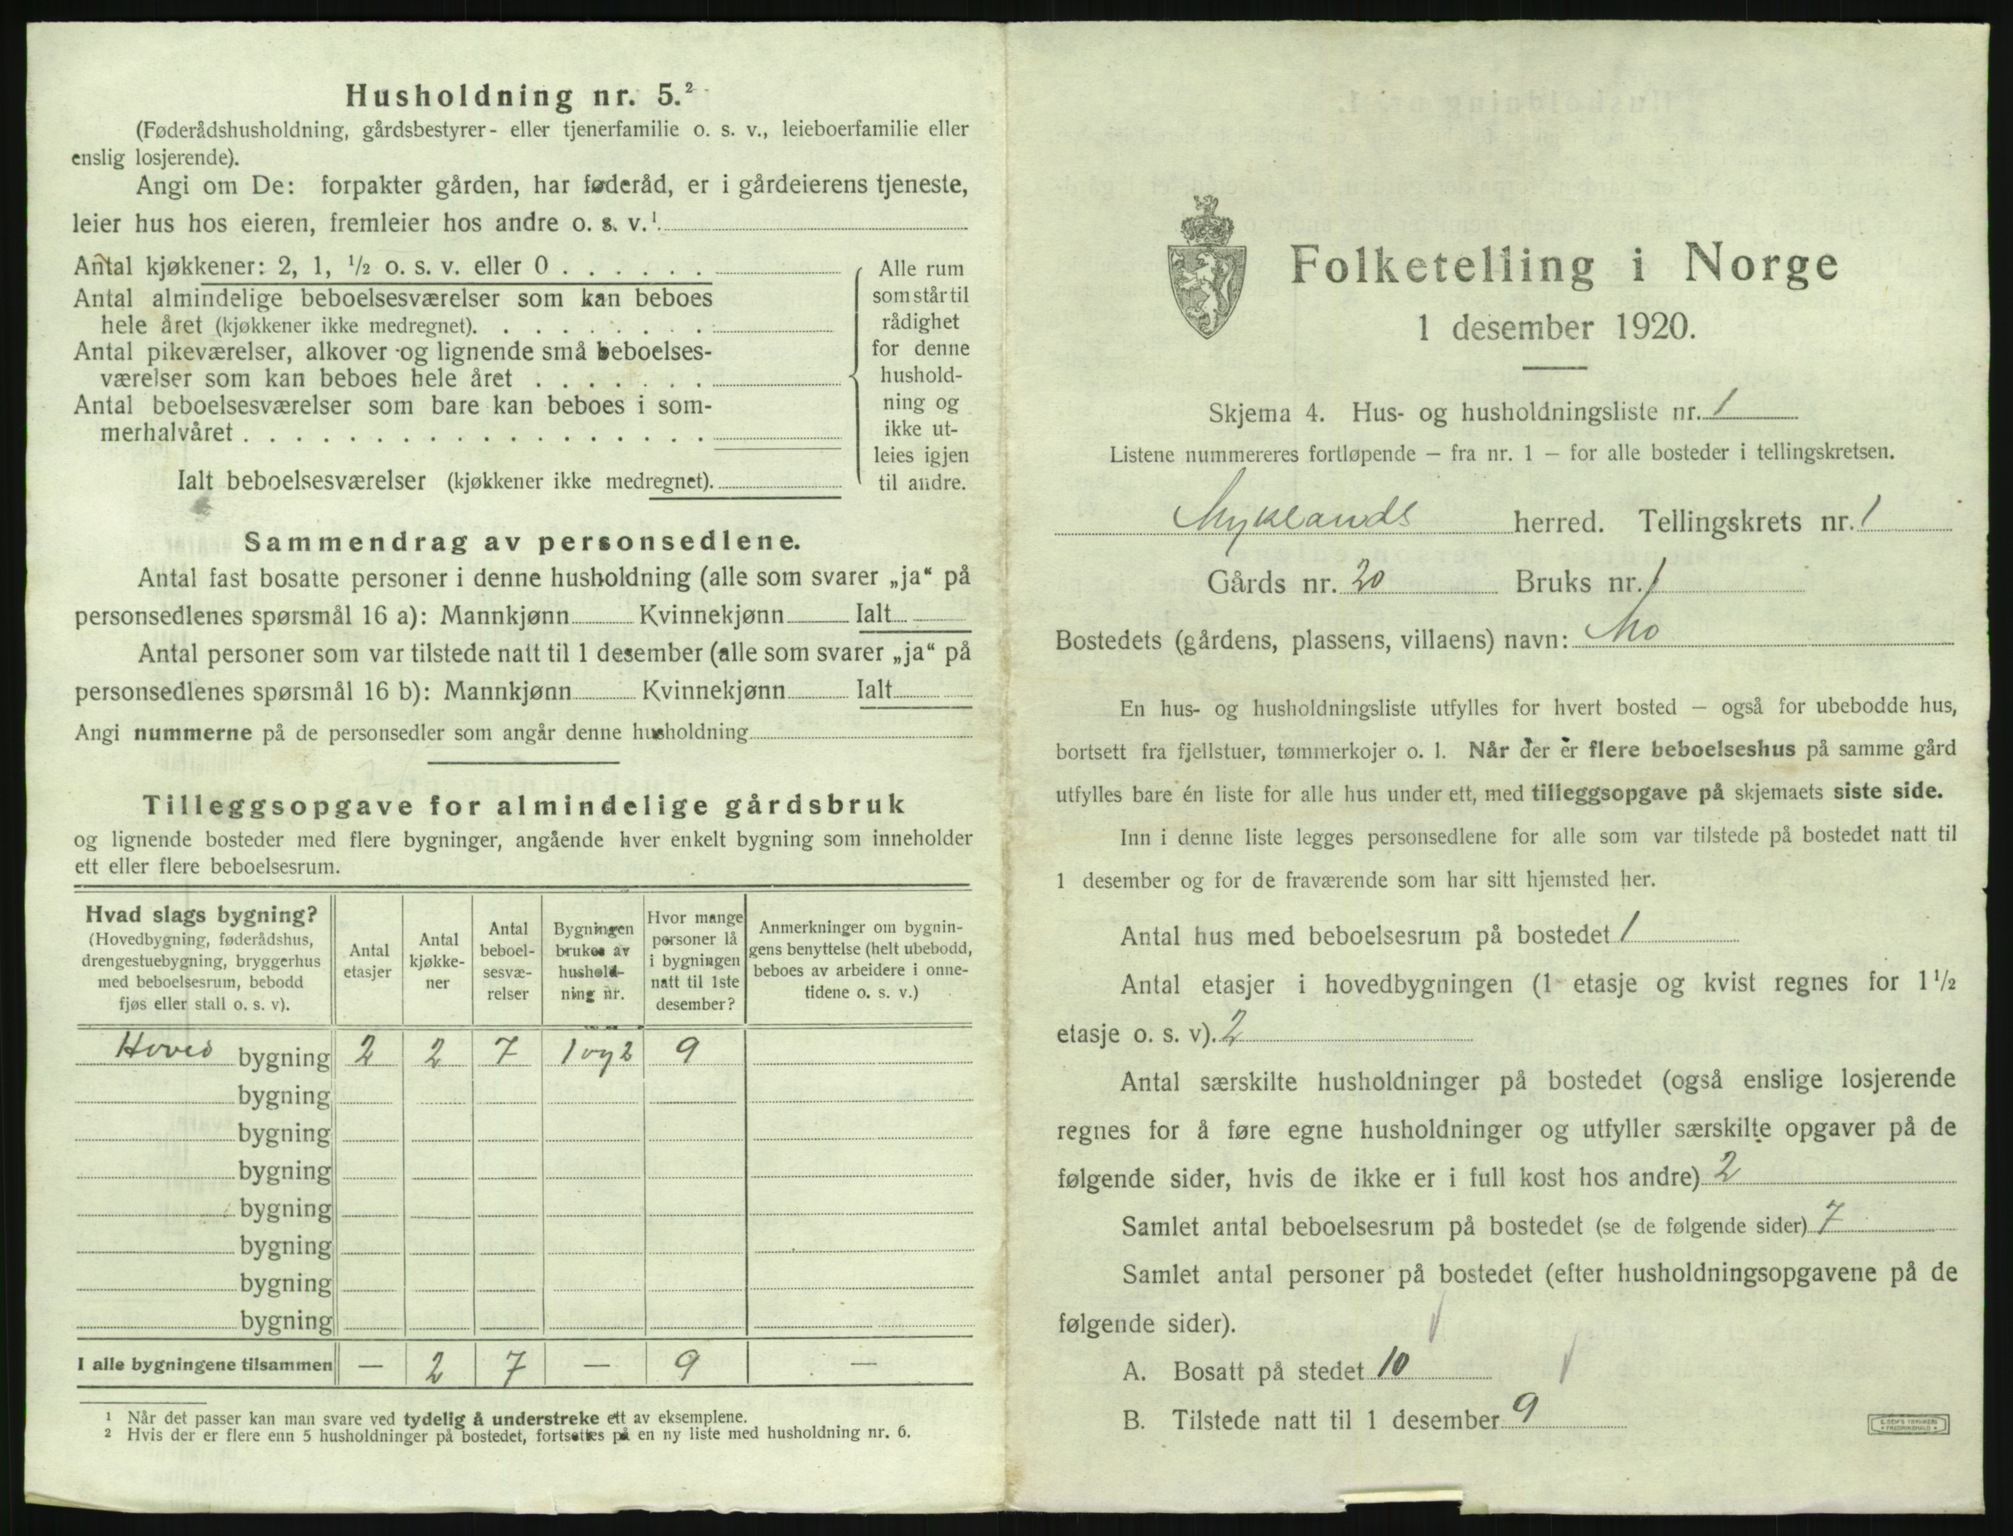 Husholdning nr. 5.²
(Føderådshusholdning, gårdsbestyrer- eller tjenerfamilie o. s. v., leieboerfamilie eller
enslig losjerende).
Angi om De: forpakter gården, har føderåd, er i gårdeierens tjeneste,
leier hus hos eieren, fremleier hos andre o. s. v.¹
Antal kjøkkener: 2, 1, ½ o. s. v. eller 0 . . . . . .
Antal almindelige beboelsesværelser som kan beboes
hele året (kjøkkener ikke medregnet). . . . . . . . .
Antal pikeværelser, alkover og lignende små beboelses-
værelser som kan beboes hele året . . . . . . .
Antal beboelsesværelser som bare kan beboes i som-
merhalvåret . . . . . . . . . . . . . . . . . .
Ialt beboelsesværelser (kjøkkener ikke medregnet).
Alle rum
som står til
rådighet
for denne
hushold-
ning og
ikke ut-
leies igjen
til andre.
Sammendrag av personsedlene.
Antal fast bosatte personer i denne husholdning (alle som svarer „ja“ på
personsedlenes spørsmål 16 a): Mannkjønn Kvinnekjønn Ialt
Antal personer som var tilstede natt til 1 desember (alle som svarer „ja“ på
personsedlenes spørsmål 16 b): Mannkjønn Kvinnekjønn Ialt
Angi nummerne på de personsedler som angår denne husholdning
Tilleggsopgave for almindelige gårdsbruk
og lignende bosteder med flere bygninger, angående hver enkelt bygning som inneholder
ett eller flere beboelsesrum.
Hvad slags bygning?
(Hovedbygning, føderådshus,
drengestuebygning, bryggerhus
med beboelsesrum, bebodd
fjøs eller stall o. s. v).
Antal
etasjer
Antal
kjøkke-
ner
Antal
beboel-
sesvæ-
relser
Bygningen
brukes av
hushold-
ning nr.
Hvor mange
personer lå
i bygningen
natt til 1ste
desember?
Anmerkninger om bygnin-
gens benyttelse (helt ubebodd,
beboes av arbeidere i onne-
tidene o. s. v.)
Hoved bygning 2 2 7 1 og 2 9
bygning
bygning
bygning
bygning
bygning
bygning
bygning
I alle bygningene tilsammen — 2 7 — 9 —
¹ Når det passer kan man svare ved tydelig å understreke ett av eksemplene.
² Hvis der er flere enn 5 husholdninger på bostedet, fortsettes på en ny liste med husholdning nr. 6.
Folketelling i Norge
1 desember 1920.
Skjema 4. Hus- og husholdningsliste nr. 1
Listene nummereres fortløpende — fra nr. 1 — for alle bosteder i tellingskretsen.
Myklands herred. Tellingskrets nr. 1
Gårds nr. 20 Bruks nr. 1
Bostedets (gårdens, plassens, villaens) navn: Mo
En hus- og husholdningsliste utfylles for hvert bosted — også for ubebodde hus,
bortsett fra fjellstuer, tømmerkojer o. l. Når der er flere beboelseshus på samme gård
utfylles bare én liste for alle hus under ett, med tilleggsopgave på skjemaets siste side.
Inn i denne liste legges personsedlene for alle som var tilstede på bostedet natt til
1 desember og for de fraværende som har sitt hjemsted her.
Antal hus med beboelsesrum på bostedet 1
Antal etasjer i hovedbygningen (1 etasje og kvist regnes for 1 ½
etasje o. s. v). 2
Antal særskilte husholdninger på bostedet (også enslige losjerende
regnes for å føre egne husholdninger og utfyller særskilte opgaver på de
følgende sider, hvis de ikke er i full kost hos andre) 2
Samlet antal beboelsesrum på bostedet (se de følgende sider) 7
Samlet antal personer på bostedet (efter husholdningsopgavene på de
følgende sider).
A. Bosatt på stedet 10
B. Tilstede natt til 1 desember 9